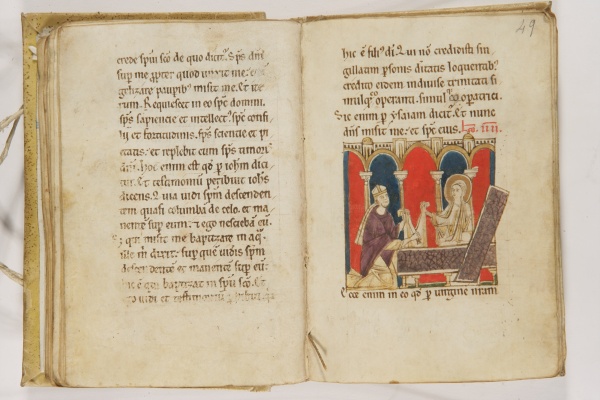 crede spm̄ scō de quo dicit̄. Sp̄s dn̄i
sup̄ me p̄pter quod unxit me.
gelizare paupib; misit me. Et ite
rum. Requiescet in eo sp̄s domini.
sp̄s sapiencie et intellect̄. sp̄s consi
lii et fortitudinis. sp̄s sciencie et pi
etatis. et replebit eum sp̄s timori
dn̄i. hoc enim est qd̄ p̄ iohm̄ dici
tur. Et testimoniū peribuit iohs̄
dicens. Quia uidi sp̄m descenden
tem quasi columbā de celo. et ma
nente sup̄ eum. et ego nesciebā eū.
s; qui misit me baptizare in aq̄.
ille m̄ dixit. sup̄ quē uidis sp̄m
descendente et manentē sup̄ eū.
hic ē qui baptizat in sp̄u scō. Et
ego uidi et testimoniū
49
hic ē fili⁹ dī. Qui nō credidisti sin
gillatim p̄sonis diuitatis loquentib;
credito eidem indiuise trinitati si
mulq; operanti. simul cooperatrici.
Sic enim p̄ ysaiam dicit̄. Et nunc
dn̄s misit me. et sp̄c eius. Lc̄o. IIII.
Ecce enim in eo qd̄ p̄ uirgine